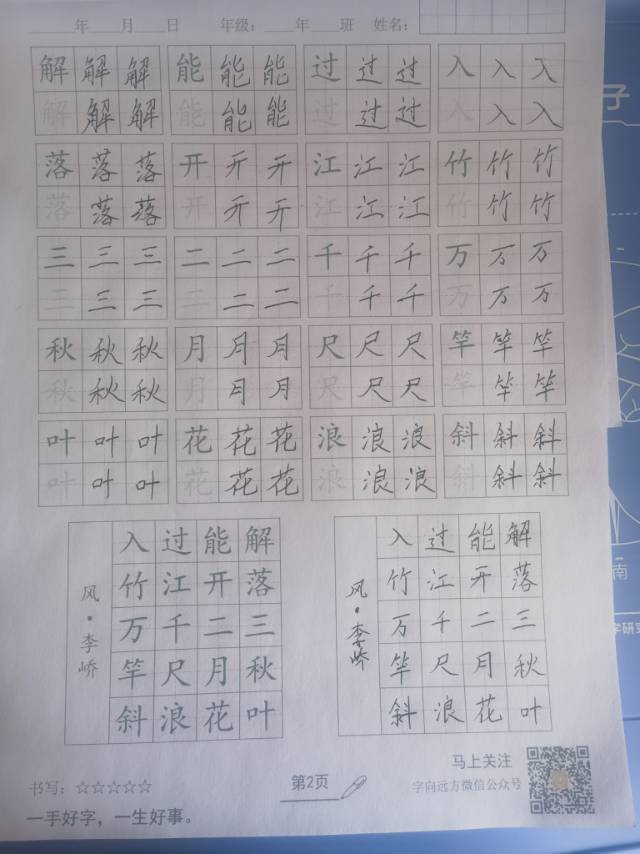 年 月 日 年级： 年 班 姓名：
解 解 解 能 能 能 过 过 过 入 入 入
解 解 解 能 能 能 过 过 过 入 入 入
落 落 落 开 开 开 江 江 江 竹 竹 竹
落 落 落 开 开 开 江 江 江 竹 竹 竹
三 三 三 二 二 二 千 千 千 万 万 万
三 三 三 二 二 二 千 千 千 万 万 万
秋 秋 秋 月 月 月 尺 尺 尺 竿 竿 竿
秋 秋 秋 月 月 月 尺 尺 尺 竿 竿 竿
叶 叶 叶 花 花 花 浪 浪 浪 斜 斜 斜
叶 叶 叶 花 花 花 浪 浪 浪 斜 斜 斜
解落三秋叶
能开二月花
过江千尺浪
入竹万竿斜
风·李峤
解落三秋叶
能开二月花
过江千尺浪
入竹万竿斜
风·李峤
书写：☆☆☆☆☆
一手好字，一生好事。
第2页
马上关注
字向远方微信公众号
子
南
字研究